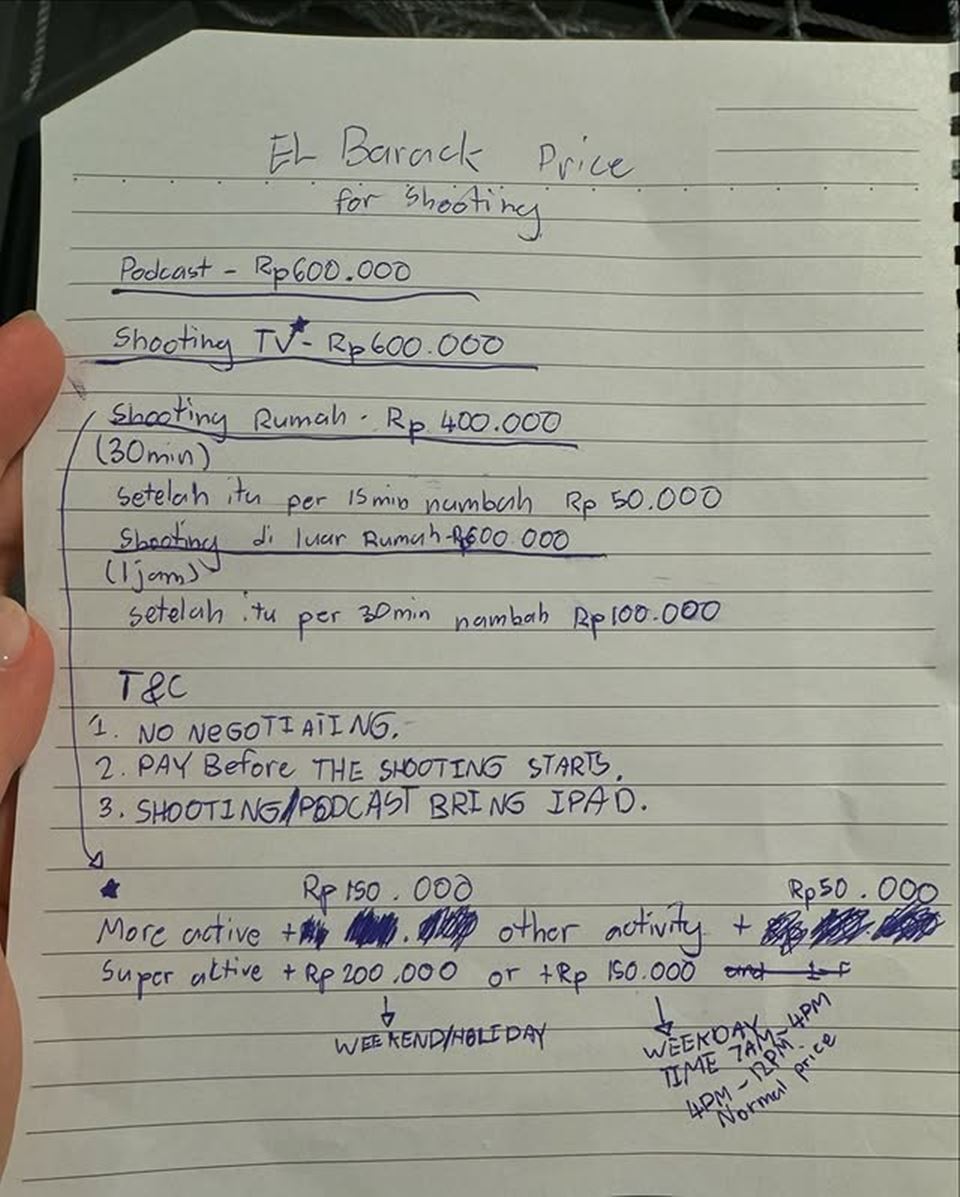 EL Barack Price
for shooting
Podcast - Rp600.000
Shooting TV★- Rp600.000
Shooting Rumah - Rp 400.000
(30min)
setelah itu per 15min nambah Rp 50.000
Shooting di luar Rumah-Rp600.000
(1jam)
setelah itu per 30min nambah Rp100.000
T&C
1. NO NeGOTIATING.
2. PAY Before THE SHOOTING STARTS.
3. SHOOTING/PODCAST BRING IPAD.
★ Rp 150.000 Rp50.000
More active + other activity +
Super aktive + Rp 200.000 or +Rp 150.000
WEEKEND/HOLIDAY
WEEKDAY
TIME 7AM-4PM
4PM-12PM-
Normal price